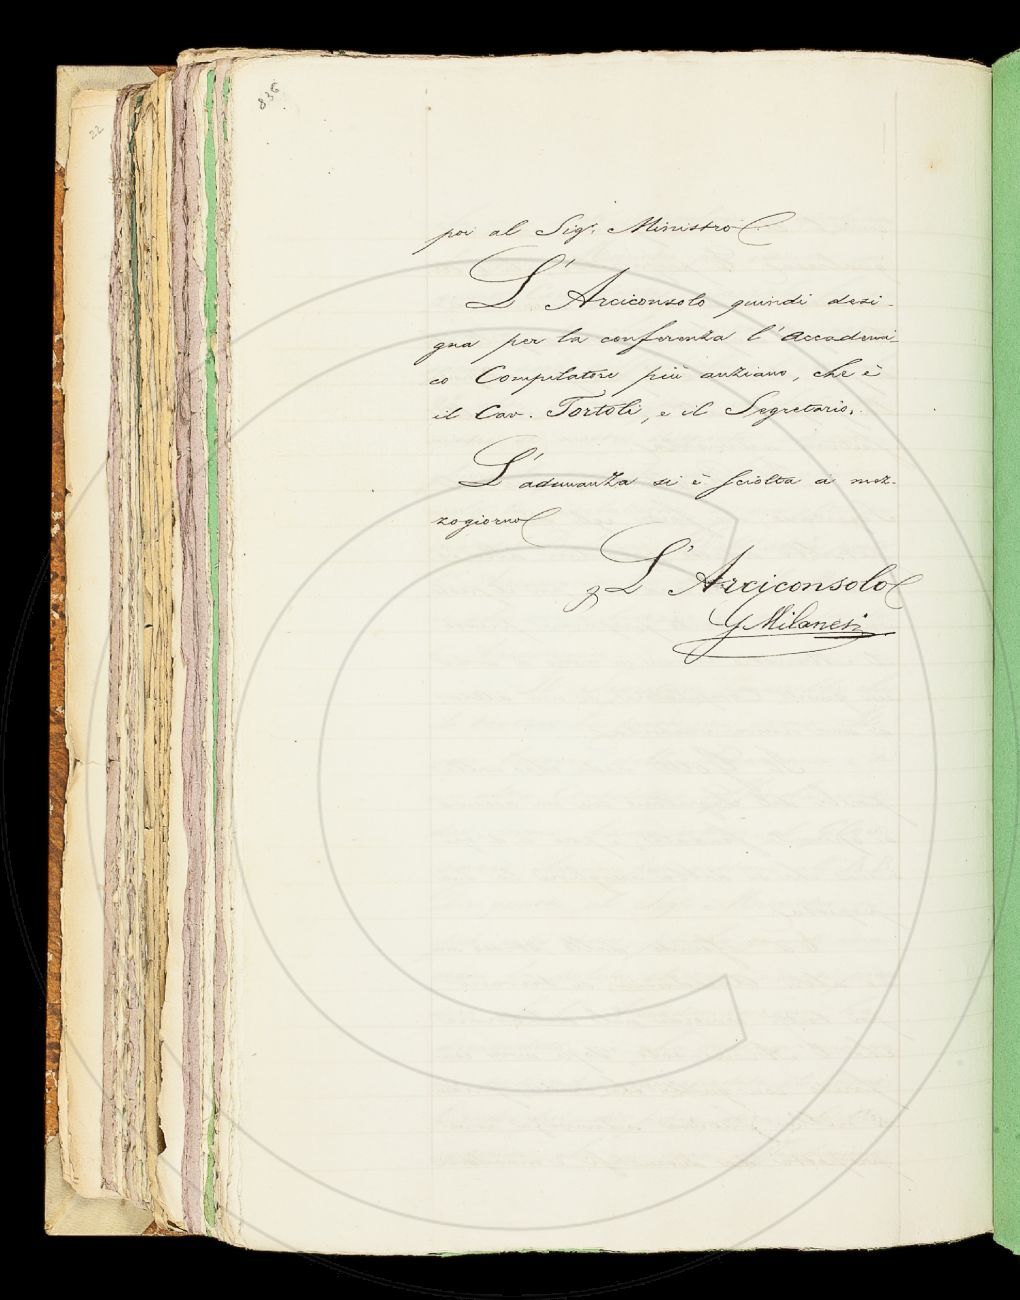 22
836
poi al Sigr. Ministro
L'Arciconsolo quindi desi-
gna per la conferenza l'Accademi-
co Compilatore più anziano, che è
il Cav. Tortoli, e il Segretario.
L'adunanza si è sciolta a mez-
zogiorno
L'Arciconsolo
G Milanesi